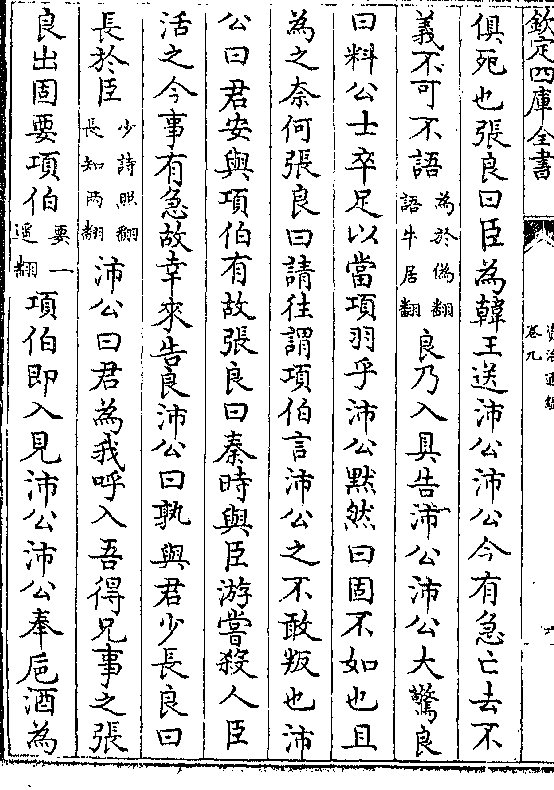 欽定四庫全書
資治通鑑
卷九
俱死也張良曰臣為韓王送沛公沛公今有急亡去不
義不可不語為於偽翻語牛居翻良乃入具告沛公沛公大驚良
曰料公士卒足以當項羽乎沛公黙然曰固不如也且
為之奈何張良曰請往謂項伯言沛公之不敢叛也沛
公曰君安與項伯有故張良曰秦時與臣游嘗殺人臣
活之今事有急故幸來告良沛公曰孰與君少長良曰
長於臣少詩照翻長知兩翻沛公曰君為我呼入吾得兄事之張
良出固要項伯要一遥翻項伯即入見沛公沛公奉巵酒為